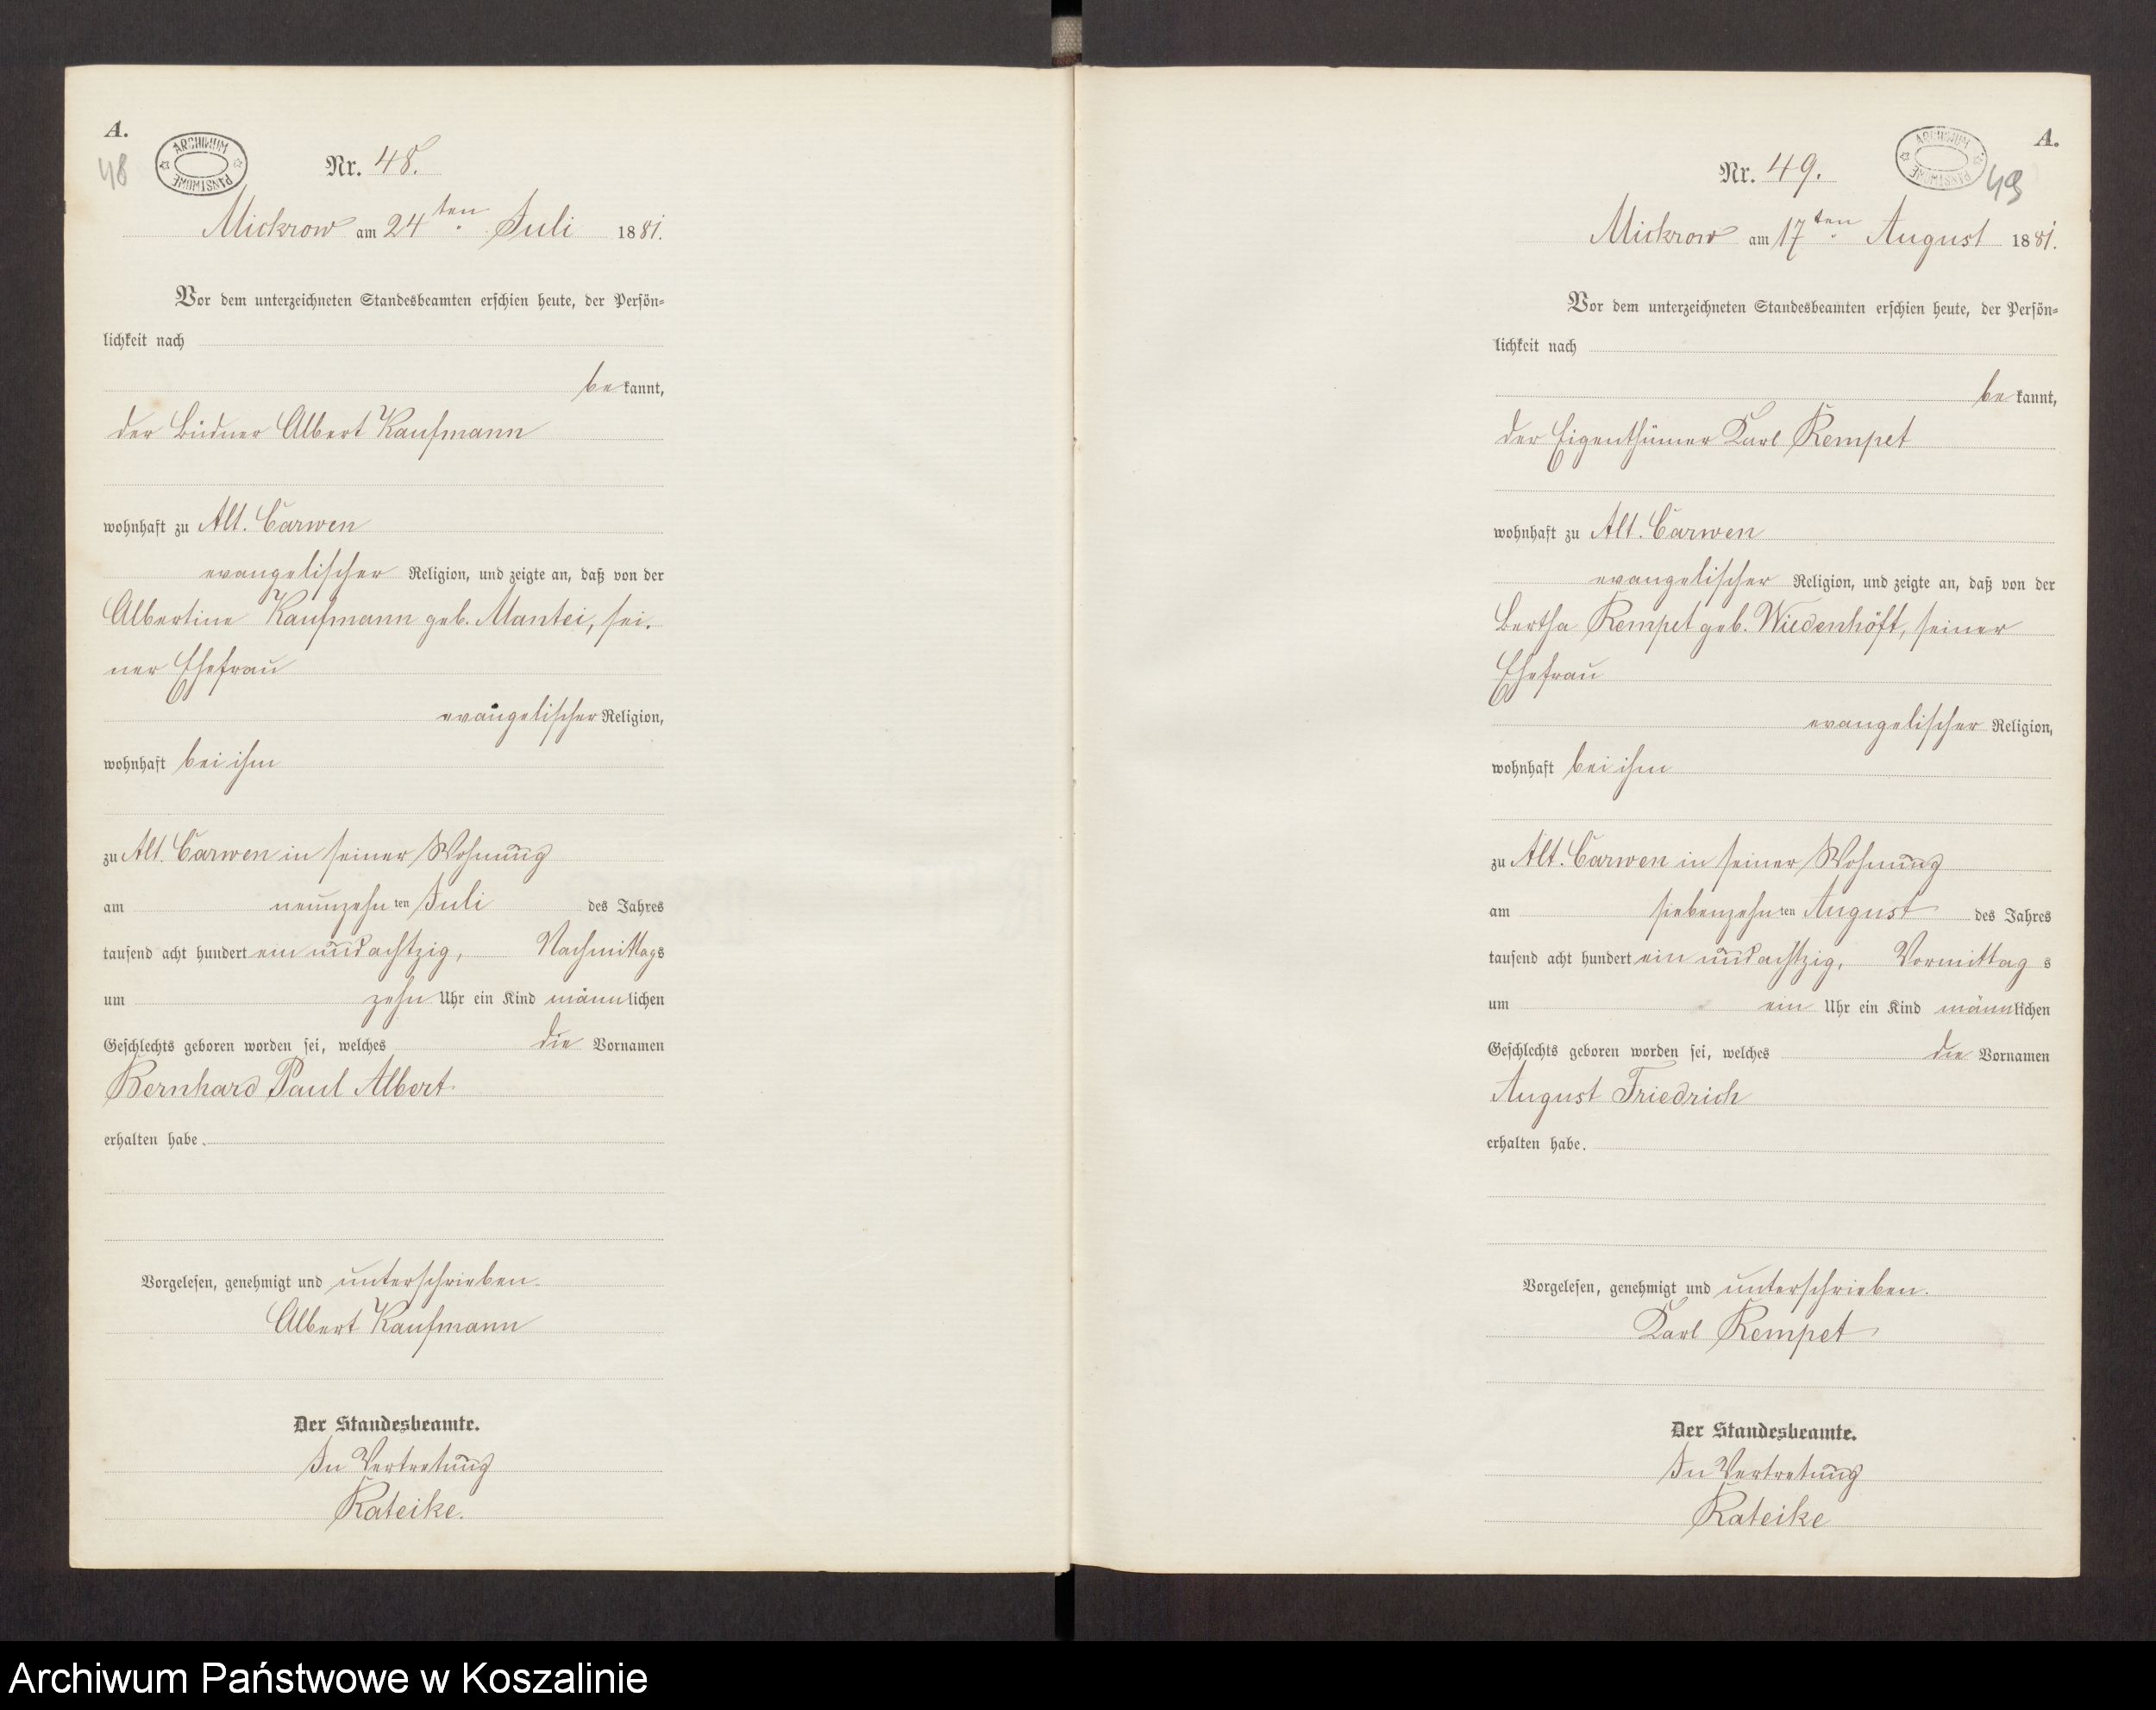 A.
48
ARCHIWUM PAŃSTWOWE
Nr. 48.
Mickrow am 24ten Juli 1881.
Vor dem unterzeichneten Standesbeamten erschien heute, der Persön-
lichkeit nach
bekannt,
der Büdner Albert Kaufmann
wohnhaft zu Alt. Carwen
evangelischer Religion, und zeigte an, daß von der
Albertine Kaufmann geb. Mantei, sei-
ner Ehefrau
evangelischer Religion,
wohnhaft bei ihm
zu Alt. Carwen in seiner Wohnung
am neunzehnten Juli des Jahres
tausend acht hundert ein und achtzig, Nachmittags
um zehn Uhr ein Kind männlichen
Geschlechts geboren worden sei, welches die Vornamen
Bernhard Paul Albert
erhalten habe.
Vorgelesen, genehmigt und unterschrieben.
Albert Kaufmann
Der Standesbeamte.
In Vertretung
Rateike.
A.
49
ARCHIWUM PAŃSTWOWE
Nr. 49.
Mickrow am 17ten August 1881.
Vor dem unterzeichneten Standesbeamten erschien heute, der Persön-
lichkeit nach
bekannt,
der Eigenthümer Karl Rempet
wohnhaft zu Alt. Carwen
evangelischer Religion, und zeigte an, daß von der
Bertha Rempet geb. Wiedenhöft, seiner
Ehefrau
evangelischer Religion,
wohnhaft bei ihm
zu Alt. Carwen in seiner Wohnung
am siebenzehnten August des Jahres
tausend acht hundert ein und achtzig, Vormittags
um ein Uhr ein Kind männlichen
Geschlechts geboren worden sei, welches die Vornamen
August Friedrich
erhalten habe.
Vorgelesen, genehmigt und unterschrieben.
Karl Rempet
Der Standesbeamte.
In Vertretung
Rateike
Archiwum Państwowe w Koszalinie